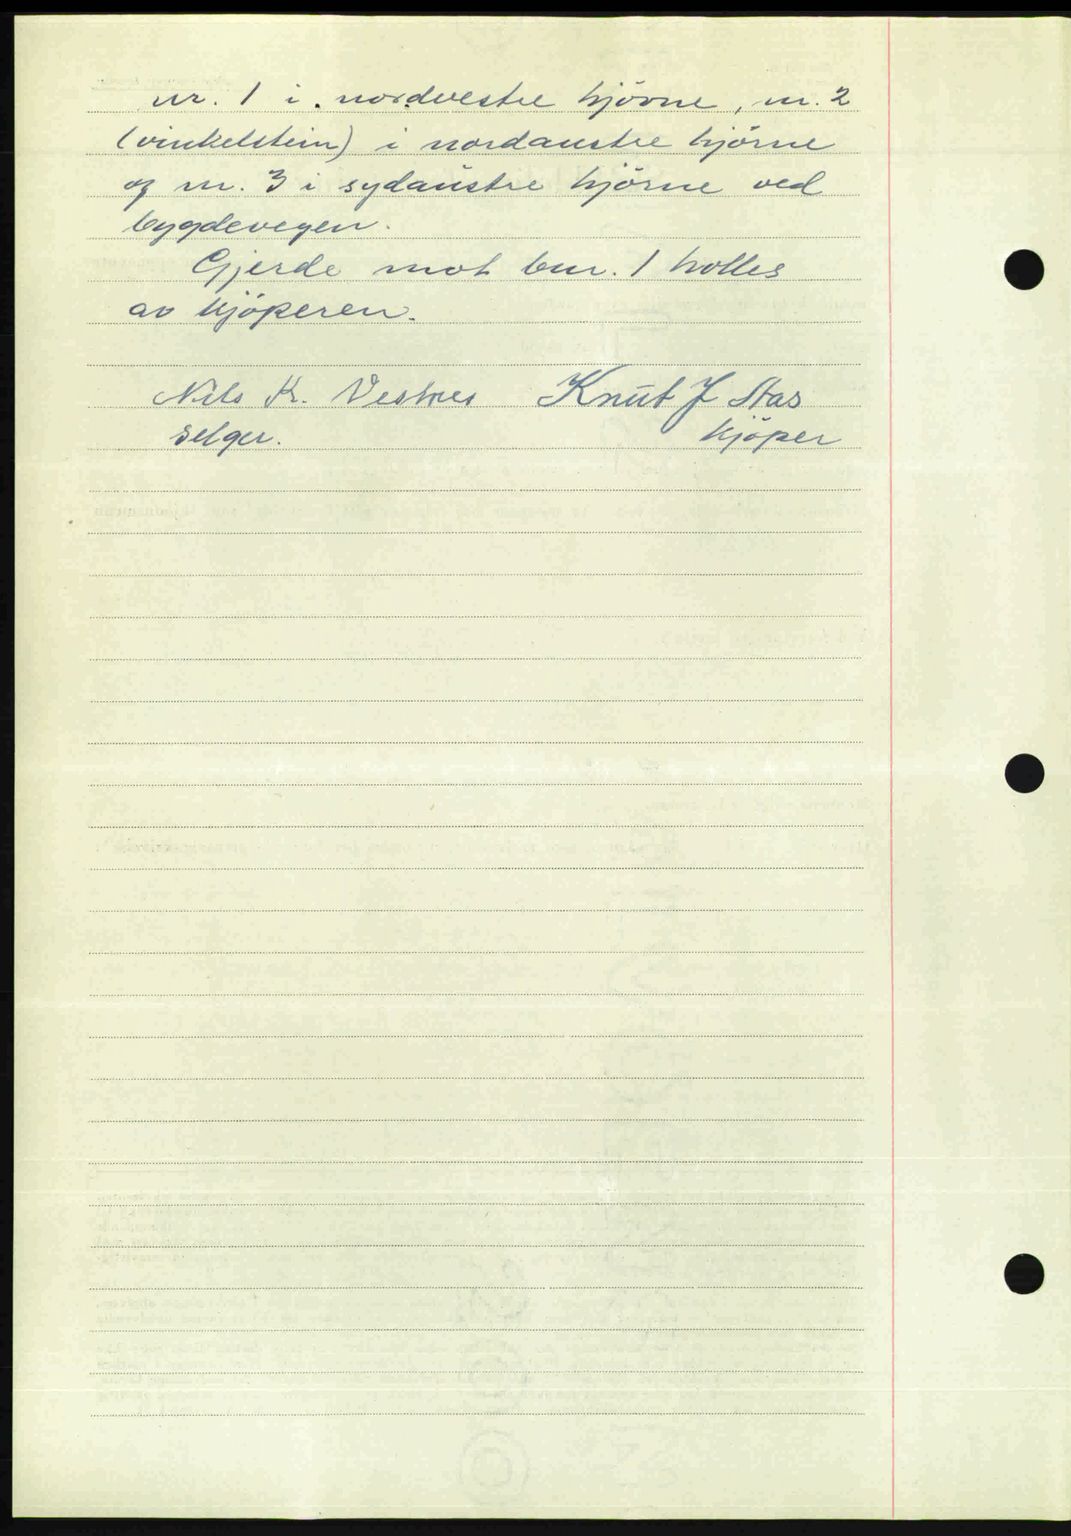 nr. 1 i nordvestre hjörne, nr. 2
(vinkelstein) i nordaustre hjörne
og nr. 3 i sydaustre hjörne ved
bygdevegen.
Gjerde mot bnr. 1 holles
av kjöperen.
Nils Kr. Vestnes Knut J Aas
selger. kjöper